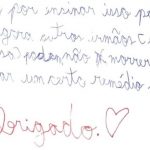 , por ensinar isso pe
outros irmãos c
podendo morrer
ar um certo remédio
Obrigado. ♡